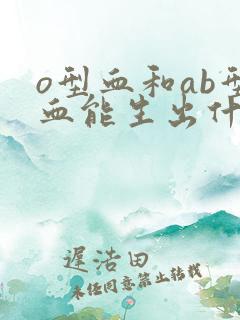 o型血和ab型
血能生出什
遲浩田
未经同意禁止转载